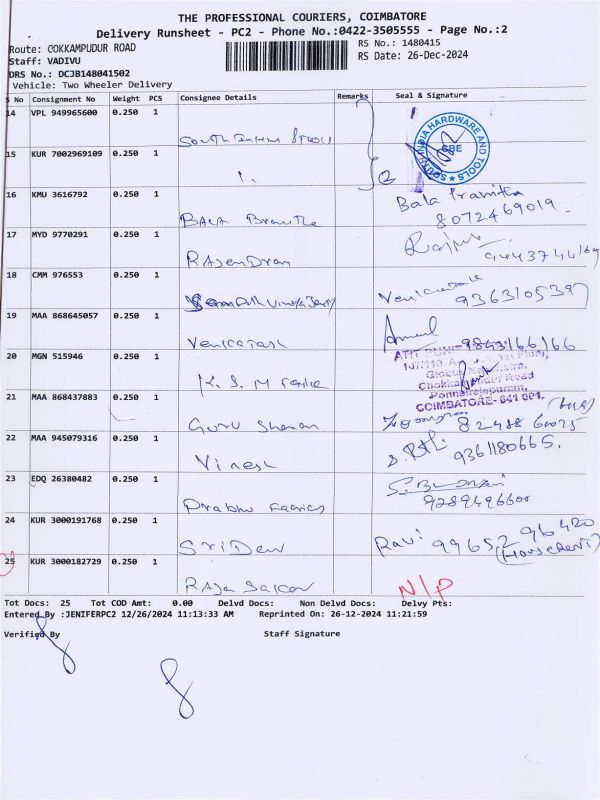 THE PROFESSIONAL COURIERS, COIMBATORE
Delivery Runsheet - PC2 - Phone No.:0422-3505555 - Page No.:2
Route: COKKAMPUDUR ROAD
RS No.: 1480415
Staff: VADIVU
RS Date: 26-Dec-2024
DRS No.: DCJB148041502
Vehicle: Two Wheeler Delivery
S No Consignment No Weight PCS Consignee Details Remarks Seal & Signature
14 VPL 949965600 0.250 1
SOUTH INDIA HARDWARE AND TOOLS
15 KUR 7002969109 0.250 1
2
16 KMU 3616792 0.250 1
Bala
8072469019
17 MYD 9770291 0.250 1
Rajendran
18 CMM 976553 0.250 1
9363105397
19 MAA 868645057 0.250 1
Venkatash
9843166166
20 MGN 515946 0.250 1
K. S. M
Ponnaiahrajapuram,
COIMBATORE- 641 001.
21 MAA 868437883 0.250 1
Guru Sharan
22 MAA 945079316 0.250 1
Vinesh
9361180665.
23 EDQ 26380482 0.250 1
Prabhu Fabrics
9289496600
24 KUR 3000191768 0.250 1
Sri Devi
Ravi 99652 96420
25 KUR 3000182729 0.250 1
Raja
N/P
Tot Docs: 25 Tot COD Amt: 0.00 Delvd Docs: Non Delvd Docs: Delvy Pts:
Entered By :JENIFERPC2 12/26/2024 11:13:33 AM Reprinted On: 26-12-2024 11:21:59
Verified By Staff Signature